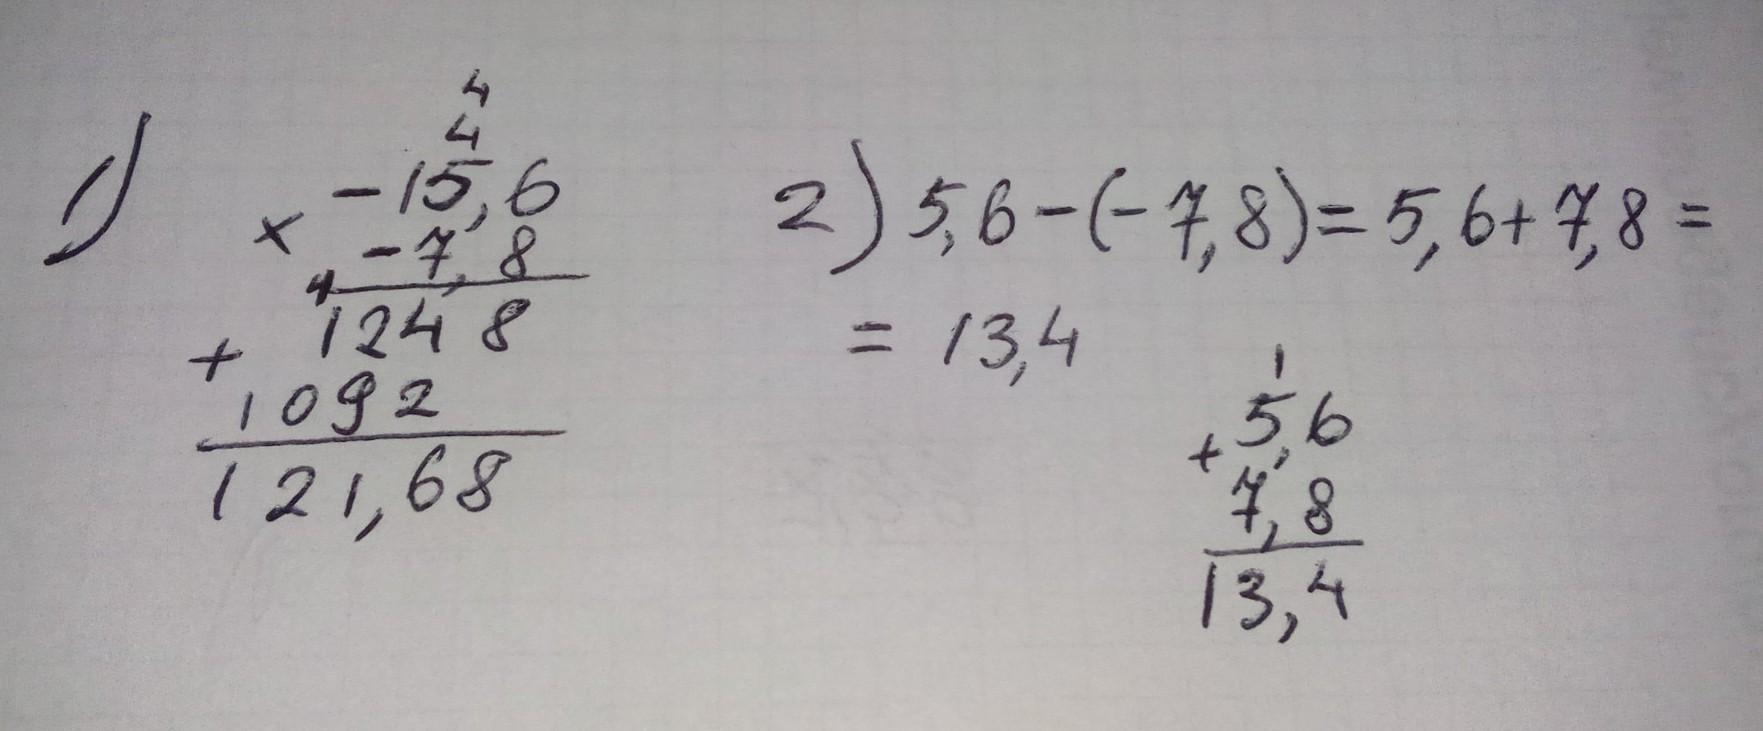 1)
4
4
-15,6
×
-7,8
1
1248
+
1092
121,68
2) 5,6-(-7,8)=5,6+7,8=
= 13,4
1
5,6
+
7,8
13,4